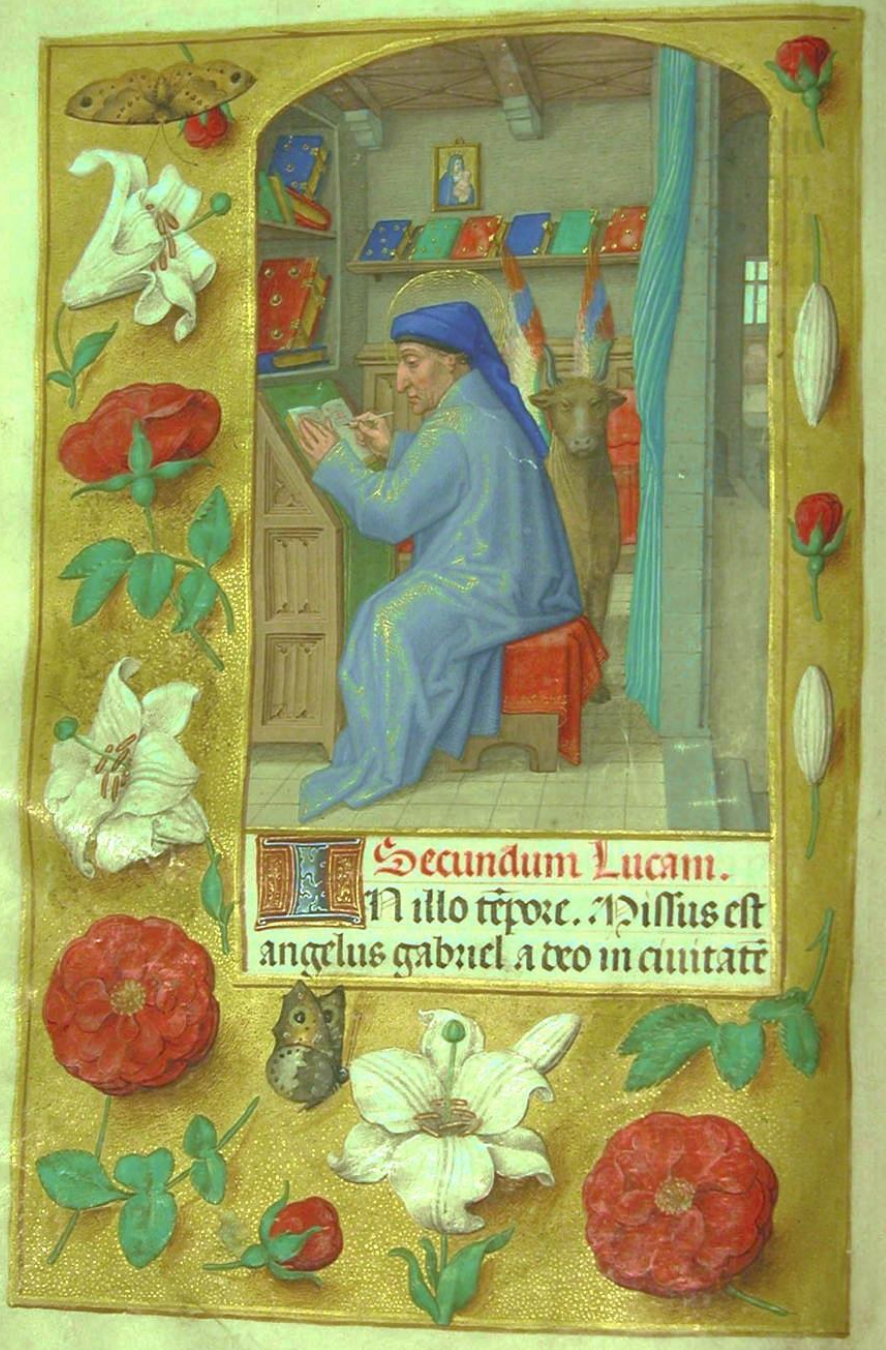 Secundum Lucam.
IN illo tēpore. Missus est
angelus gabriel a deo in ciuitatē